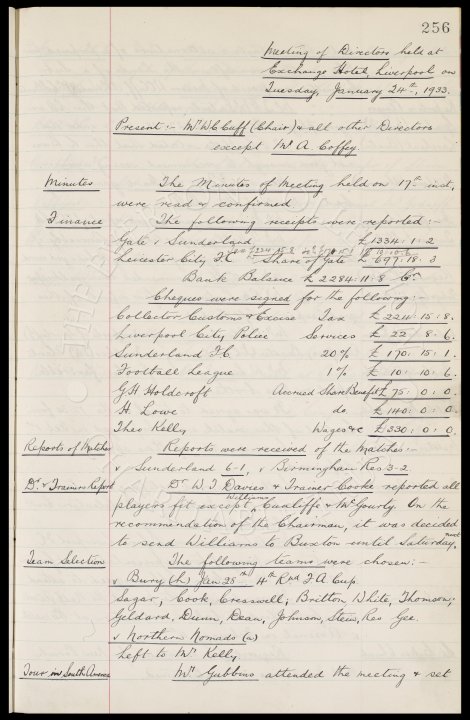 256
Meeting of Directors held at
Exchange Hotel, Liverpool on
Tuesday, January 24th, 1933.
Present :- Mr W C Cuff (Chair) & all other Directors
except Mr A. Coffey.
Minutes The Minutes of Meeting held on 17th inst,
were read & confirmed
Finance The following receipts were reported :-
Gate v Sunderland £1334 : 1 : 2
Leicester City F.C. Share of Gate £ 697 : 18 : 3
Bank Balance £2284 : 11 : 8 Cr.
Cheques were signed for the following :-
Collector Customs & Excise Tax £224 : 15 : 8.
Liverpool City Police Services £ 22 : 8 : 6.
Sunderland F.C. 20% £ 170 : 15 : 1.
Football League 1% £ 10 : 10 : 6.
G H Holdcroft Accrued Share Benefit £75 : 0 : 0.
H Lowe do. £140 : 0 : 0.
Theo Kelly Wages &c £330 : 0 : 0.
Reports of Matches Reports were received of the Matches :-
v Sunderland 6-1, v Birmingham Res 3-2.
Dr. & Trainers Report Dr W F Davies & Trainer Cooke reported all
players fit except Williams, Cunliffe & McGourty. On the
recommendation of the Chairman, it was decided
to send Williams to Buxton until Saturday, next
Team Selection The following teams were chosen :-
v Bury (h) Jan 25th 4th Rnd F A Cup.
Sagar; Cook, Cresswell; Britton White, Thomson;
Geldard, Dunn, Dean, Johnson, Stein, Res Gee.
v Northern Nomads (a)
Left to Mr Kelly
Tour in South America Mr Gubbins attended the meeting & set